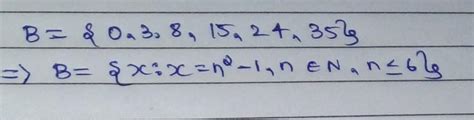 B = { 0, 3, 8, 15, 24, 35}
=> B = { x : x = n² - 1, n ∈ N, n ≤ 6}